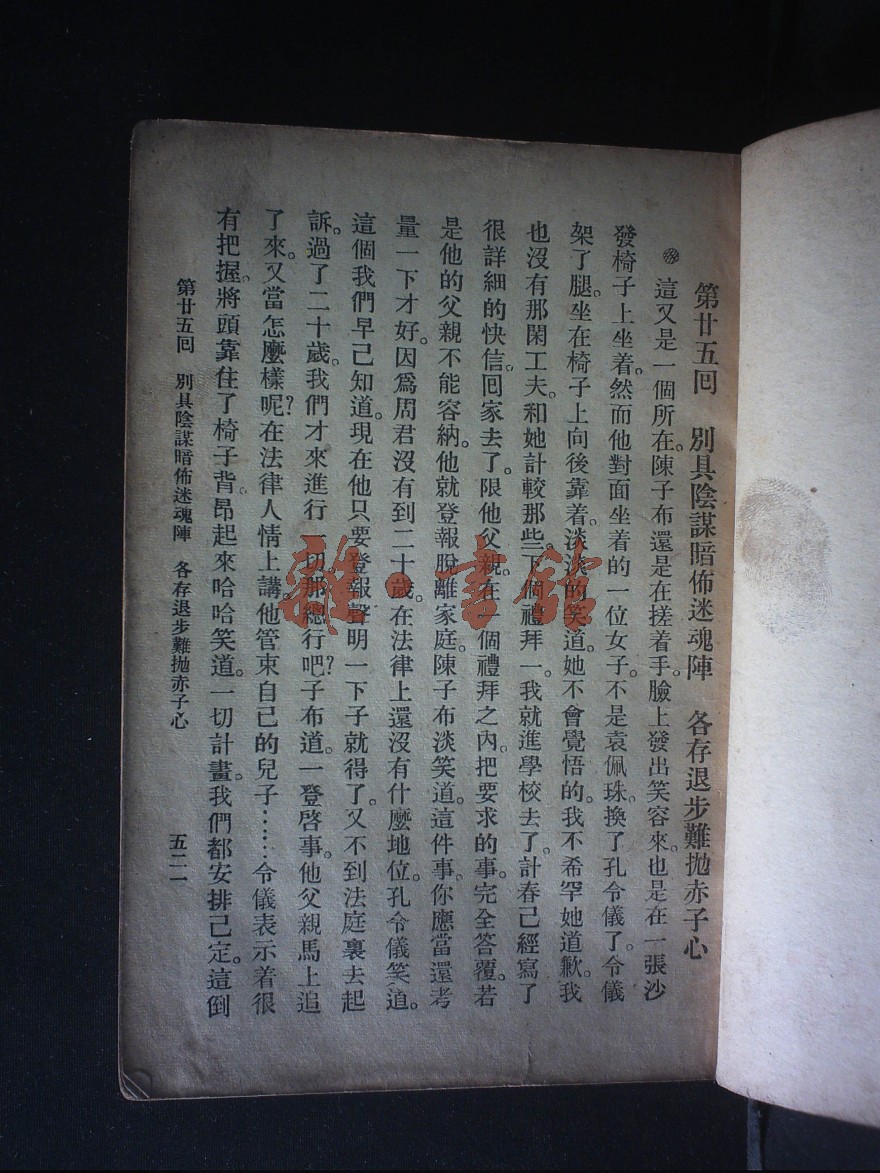 第廿五回　別具陰謀暗佈迷魂陣　各存退步難抛赤子心
這又是一個所在。陳子布還是在搓着手。臉上發出笑容來。也是在一張沙
發椅子上坐着。然而他對面坐着的一位女子。不是袁佩珠。換了孔令儀了。令儀
架了腿。坐在椅子上向後靠着。淡淡的笑道。她不會覺悟的。我不希罕她道歉。我
也沒有那閑工夫。和她計較那些。下個禮拜一。我就進學校去了。計春已經寫了
很詳細的快信。回家去了。限他父親。在一個禮拜之內。把要求的事。完全答覆。若
是他的父親不能容納。他就登報脫離家庭。陳子布淡笑道。這件事。你應當還考
量一下才好。因爲周君沒有到二十歲。在法律上還沒有什麼地位。孔令儀笑道。
這個我們早已知道。現在他只要登報聲明一下子就得了。又不到法庭裏去起
訴。過了二十歲。我們才來進行一切。那總行吧？子布道。一登啓事。他父親馬上追
了來。又當怎麼樣呢？在法律人情上講。他管束自己的兒子……令儀表示着很
有把握。將頭靠住了椅子背。昂起來哈哈笑道。一切計畫。我們都安排已定。這倒
第廿五回　別具陰謀暗佈迷魂陣　各存退步難抛赤子心　五二一
雜·書館